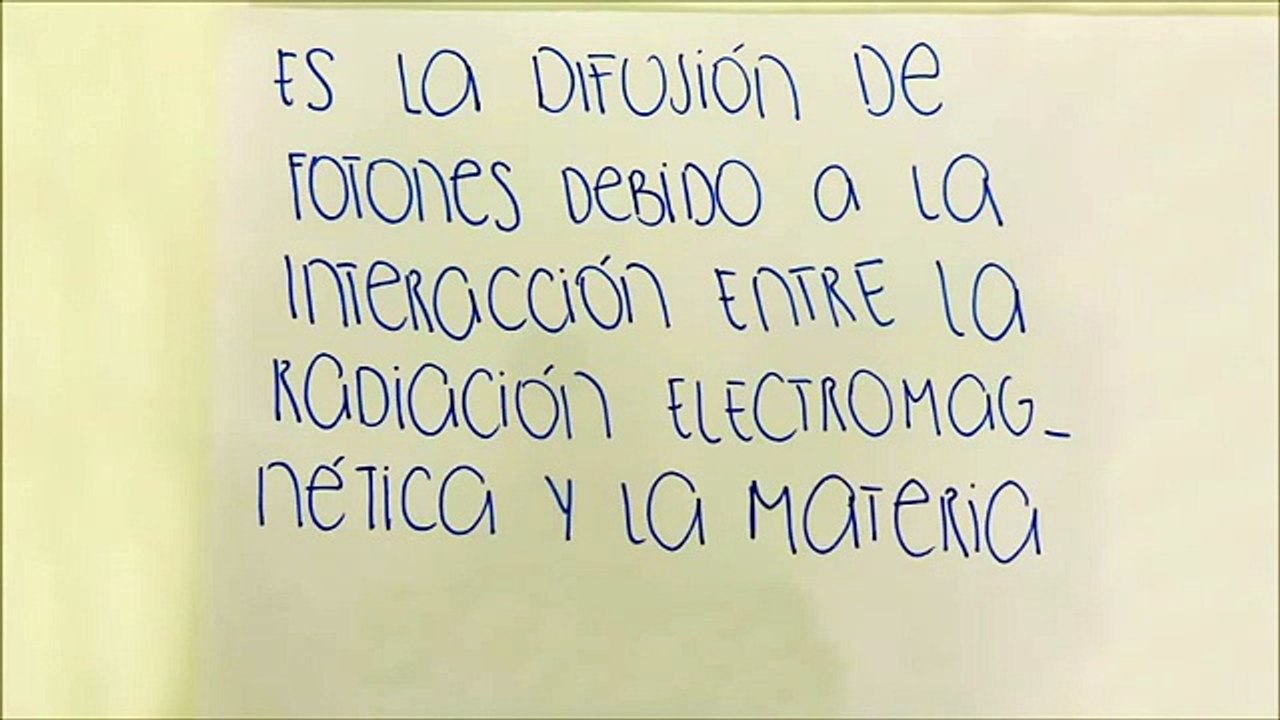 Es la difusión de
fotones debido a la
interacción entre la
radiación electromag-
nética y la materia